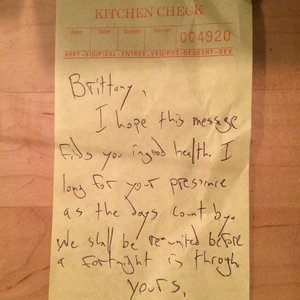 KITCHEN CHECK
Date Table Guests Server 004920
APPT-SOUP/SAL-ENTREE-VEG/POT-DESSERT-BEV
Brittany,
I hope this message
finds you in good health. I
long for your presence
as the days count by.
We shall be reunited before
a fortnight is through.
yours,